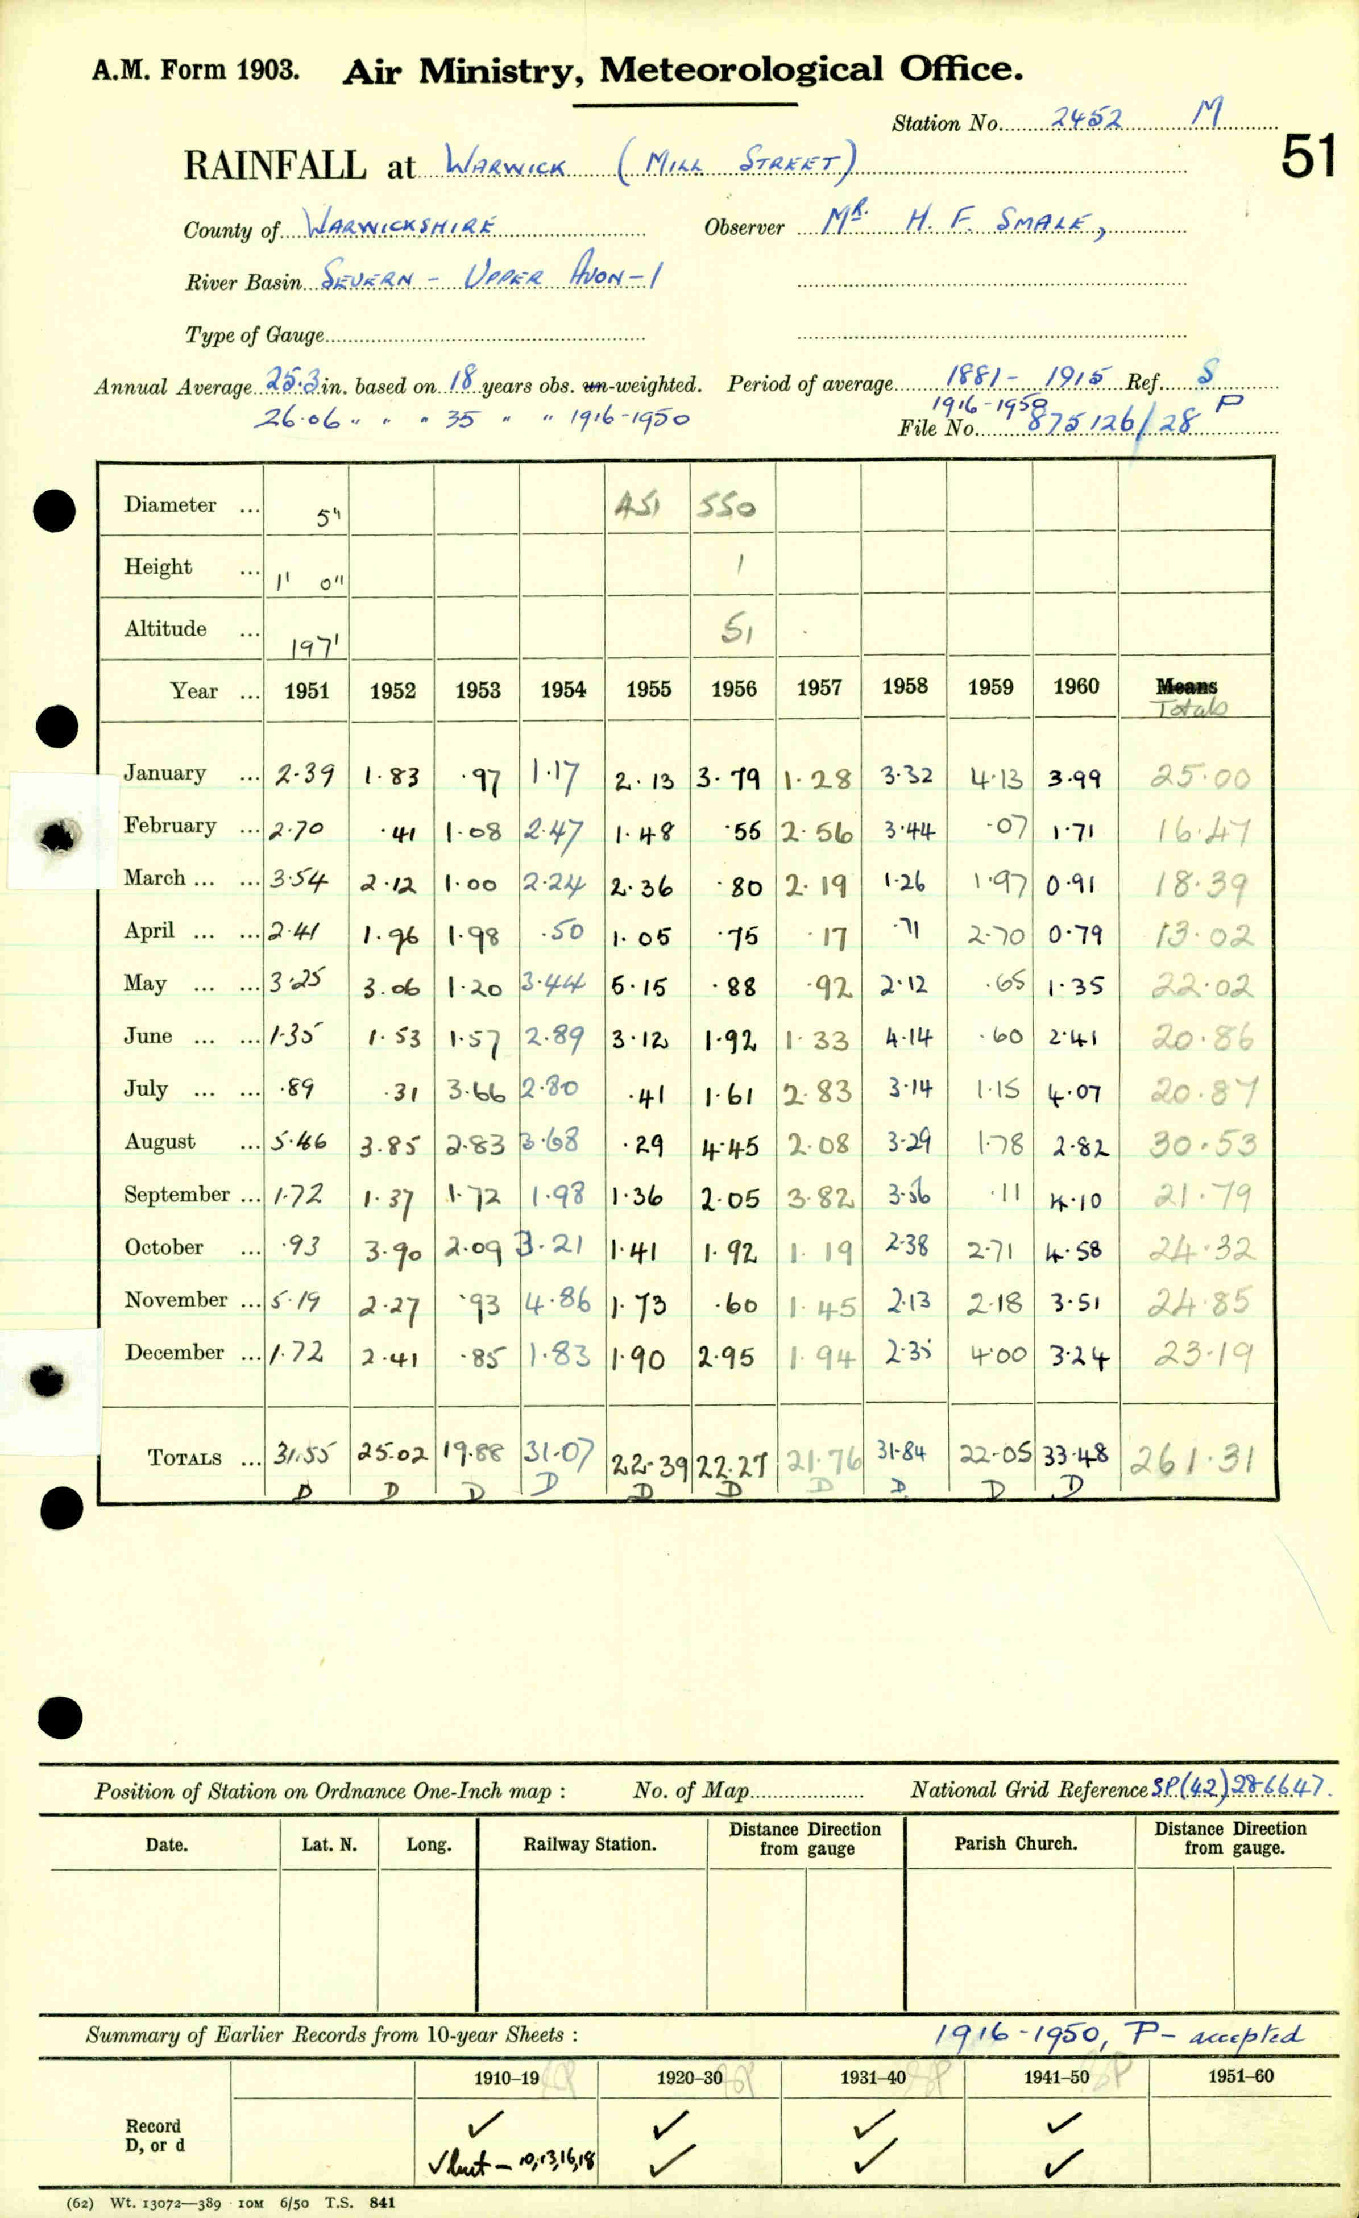 A.M. Form 1903. Air Ministry, Meteorological Office.
Station No. 2452 M
51
RAINFALL at WARWICK (MILL STREET)
County of WARWICKSHIRE Observer MR. H. F. SMALE,
River Basin SEVERN - UPPER AVON-1
Type of Gauge
Annual Average 25.3 in. based on 18 years obs. un-weighted. Period of average 1881 - 1915 Ref. S
26.06 " " " 35 " " 1916-1950 1916-1950 P
File No. 875126/28
Diameter ... 5" 451 550
Height ... 1' 0" 1
Altitude ... 197' 51
Year ... 1951 1952 1953 1954 1955 1956 1957 1958 1959 1960 Means
Totals
January ... 2.39 1.83 .97 1.17 2.13 3.79 1.28 3.32 4.13 3.99 25.00
February ... 2.70 .41 1.08 2.47 1.48 .56 2.56 3.44 .07 1.71 16.47
March ... ... 3.54 2.12 1.00 2.24 2.36 .80 2.19 1.26 1.97 0.91 18.39
April ... ... 2.41 1.96 1.98 .50 1.05 .75 .17 .71 2.70 0.79 13.02
May ... ... 3.25 3.06 1.20 3.44 5.15 .88 .92 2.12 .65 1.35 22.02
June ... ... 1.35 1.53 1.57 2.89 3.12 1.92 1.33 4.14 .60 2.41 20.86
July ... ... .89 .31 3.66 2.80 .41 1.61 2.83 3.14 1.15 4.07 20.87
August ... 5.46 3.85 2.83 3.68 .29 4.45 2.08 3.29 1.78 2.82 30.53
September ... 1.72 1.37 1.72 1.98 1.36 2.05 3.82 3.56 .11 4.10 21.79
October ... .93 3.90 2.09 3.21 1.41 1.92 1.19 2.38 2.71 4.58 24.32
November ... 5.19 2.27 .93 4.86 1.73 .60 1.45 2.13 2.18 3.51 24.85
December ... 1.72 2.41 .85 1.83 1.90 2.95 1.94 2.35 4.00 3.24 23.19
TOTALS ... 31.55 25.02 19.88 31.07 22.39 22.27 21.76 31.84 22.05 33.48 261.31
D D D D D D D D D D
Position of Station on Ordnance One-Inch map : No. of Map National Grid Reference SP(42)286647.
Date. Lat. N. Long. Railway Station. Distance Direction from gauge Parish Church. Distance Direction from gauge.
Summary of Earlier Records from 10-year Sheets : 1916-1950, P- accepted
1910-19 1920-30 1931-40 1941-50 1951-60
Record ✓ ✓ ✓ ✓
D, or d ✓ but - 10,13,16,18 ✓ ✓ ✓
(62) Wt. 13072—389 10M 6/50 T.S. 841